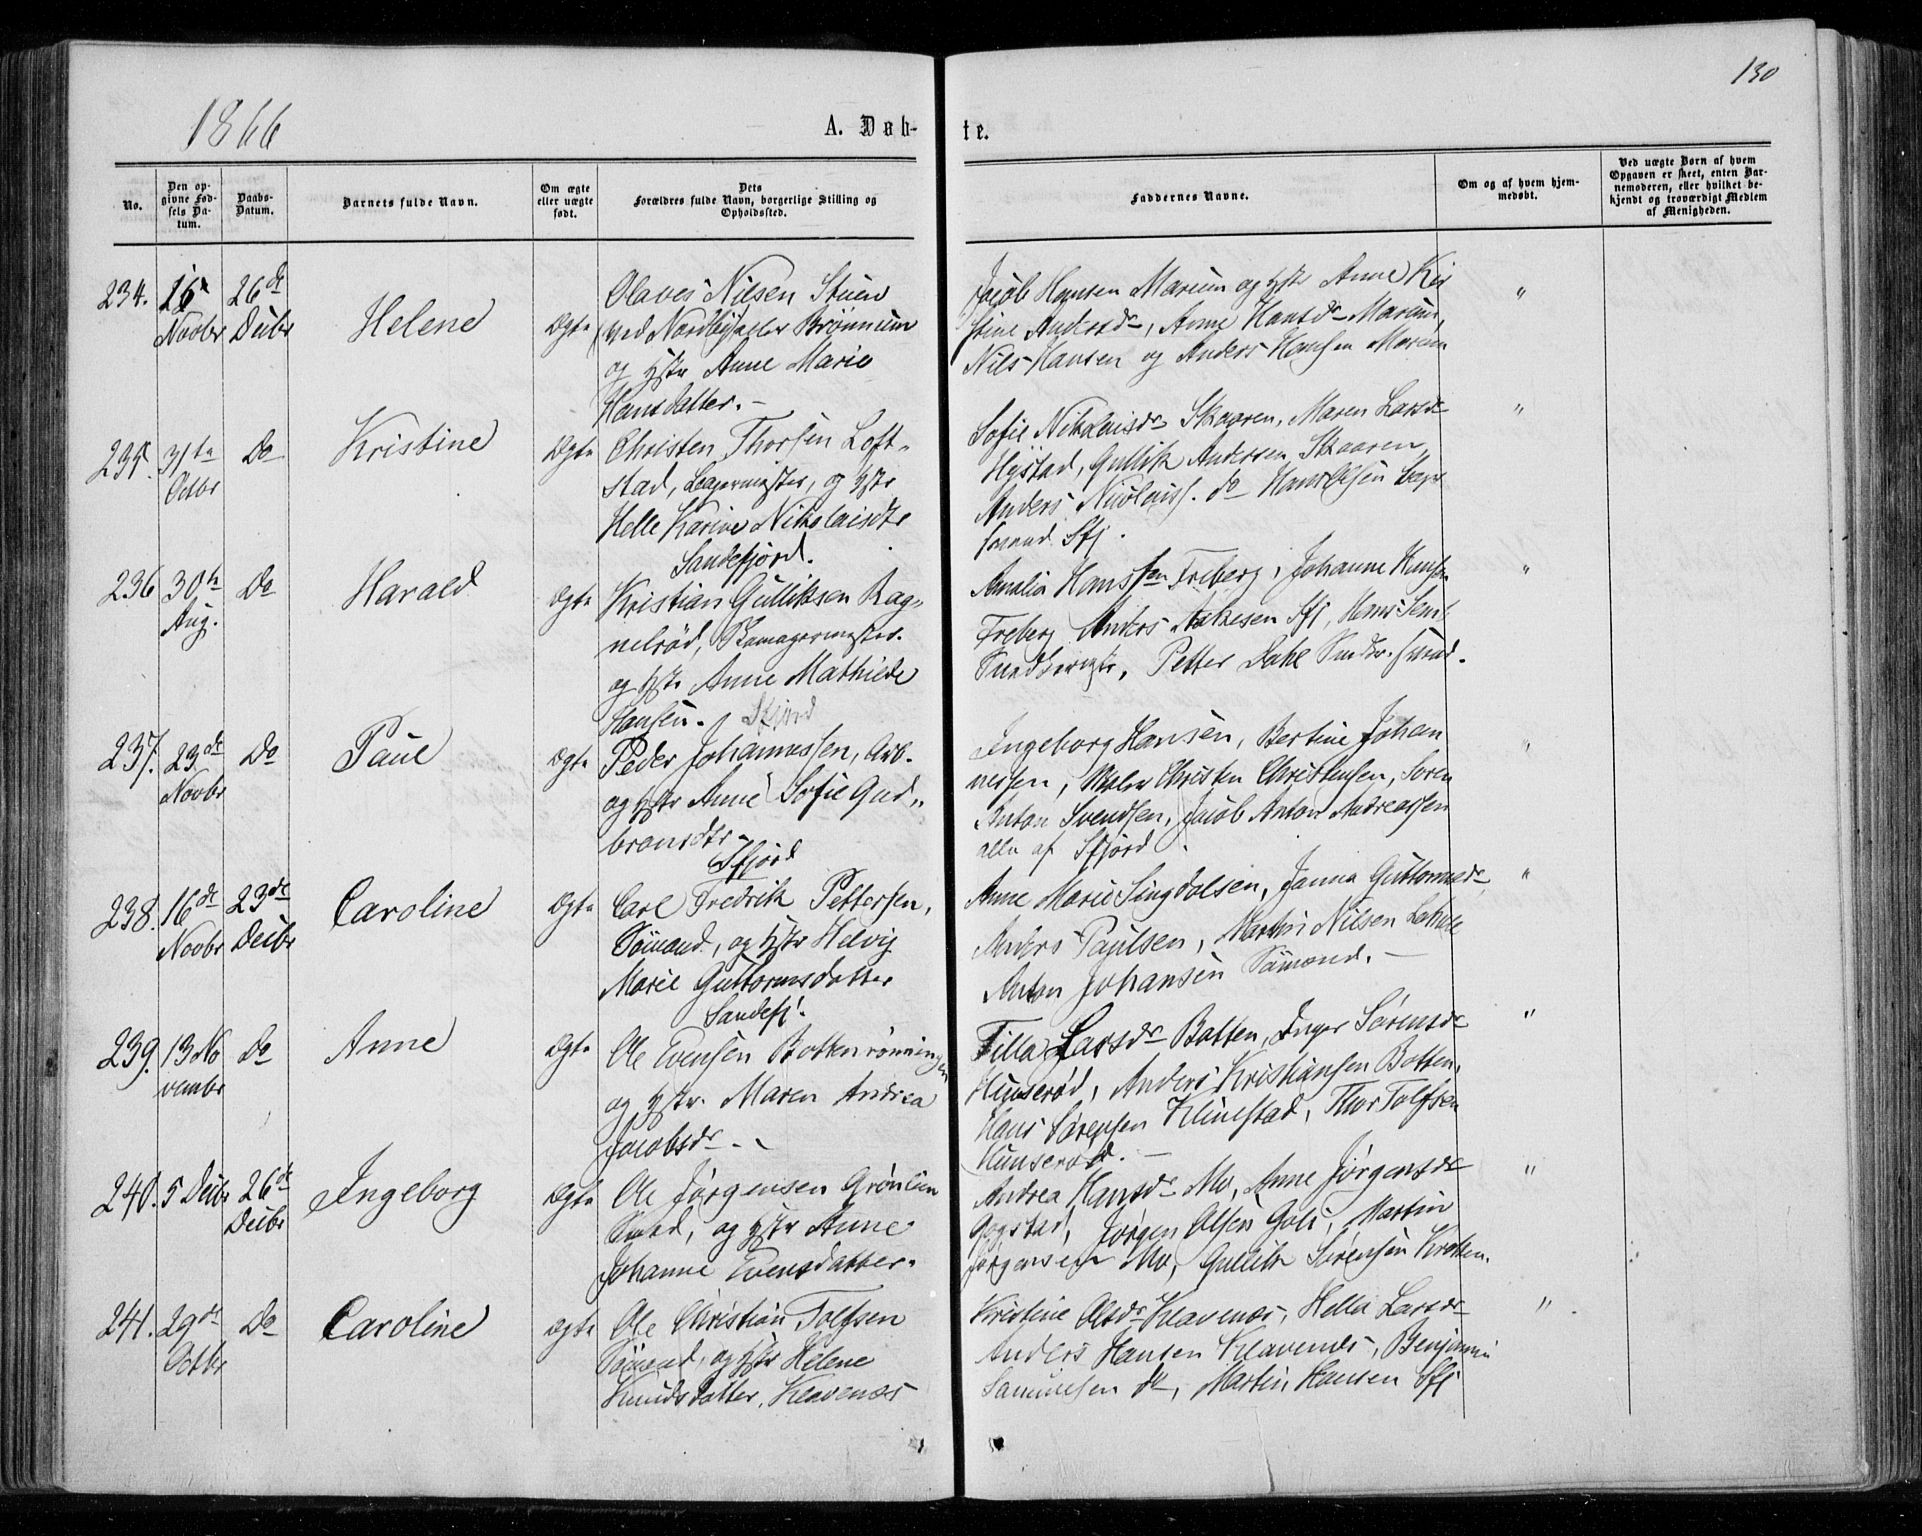 1866
130
A. Døb-
te.
No.
Den op-
givne Fød-
sels Da-
tum.
Daabs-
Datum.
Barnets fulde Navn.
Om ægte
eller uægte
født.
Dets
Forældres fulde Navn, borgerlige Stilling og
Opholdssted.
Faddernes Navne.
Om og af hvem hjem-
medøbt.
Ved uægte Børn af hvem
Opgaven er skeet, enten Bar-
nemoderen, eller hvilket be-
kjendt og troværdigt Medlem
af Menigheden.
234.
Novbr
26de
Decbr
Helene
Ægte
Olaves Nilsen Stuen
ved Brønnum
og Hstr Anne Marie
Hansdatter. –
Jacob Hansen Marium og Hstr Anne Kir
stine Andersdr, Anne Hansdr Marum,
Nils Hansen og Anders Hansen Marum
"
235.
31te
Octbr
Do
Kristine
Ægte
Christen Thorsen Loft-
stad, og Hstr
Helle Karine Nikolaisdtr
Sandefjord.
Sofie Nikolaisdr Skaaren, Maren Larsdr
Hystad, Gullik Andersen Skaaren,
Anders Nicolaiss. do Hans Olsen
Sfj.
"
236
30te
Aug.
Do
Harald
Ægte
Kristian Gulliksen Rag-
nelrød, Skomagermester.
og Hstr Anne Mathilde
Hansen. Sfjord
Amalia Hanssen Freberg, Johanne Hansen
Freberg Anders Sfj, Hans
Petter Dahl
"
237.
23de
Novbr
Do
Paul
Ægte
Peder Johannessen, Arb.
og Hstr Anne Sofie Gud-
bransdtr
Sfjord
Ingeborg Hansen, Bertine Johan
nessen, Maler Christen Christensen, Søren
Anton Svendsen, Jacob Anton Andreassen
alle af Sfjord
"
238.
16de
Novbr
23de
Decbr
Caroline
Ægte
Carl Fredrik Pettersen,
Sømand, og Hstr Helvig
Marie Guttormsdatter
Sandefj.
Anne Marie Lingdolsen, Janna Guttormsdr
Anders Paulsen, Martin Nilsen
Anton Johansen Sømand. –
"
239.
13 No
vembr
Do
Anne
Ægte
Ole Evensen Bottenrønningen
og Hstr. Maren Andrea
Jacobsdr –
Tilla Larsdr Botten, Inger Sørensdr
Hunserød, Anders Kristiansen Botten,
Hans Sørensen Klinestad, Thor Tolfsen
Hunserød. –
"
240.
5 Decbr
26de
Decbr
Ingeborg
Ægte
Ole Jørgensen Grønlien
og Hstr Anne
Johanne Evensdatter.
Andrea Hansdr Mo, Anne Jørgensdr
Gogstad, Jørgen Olsen Goli, Martin
Jørgensen Mo, Gullik Sørensen
"
241.
29de
Octbr
Do
Caroline
Ægte
Ole Christian Tolfsen
Sømand, og Hstr Helene
Knudsdatter, Klavenæs
Kristine Olsdr Klavenæs, Hella Larsdr
Anders Hansen Klavenæs, Benjamin
Samuelsen do, Martin Hansen Sfj
"